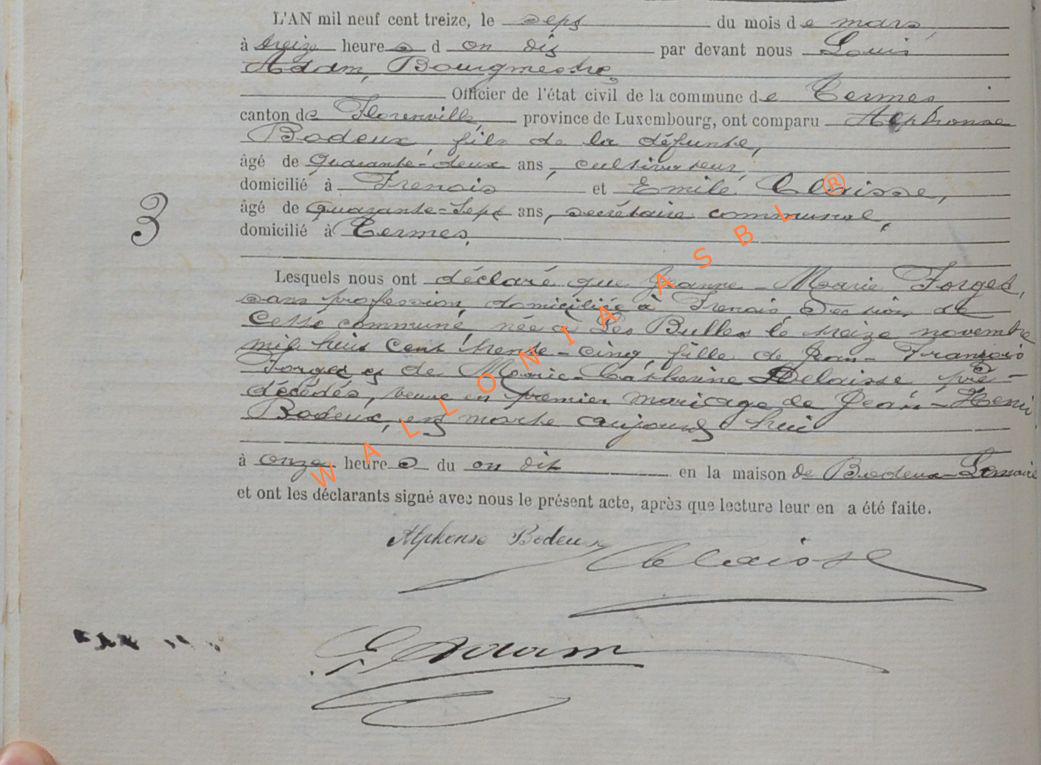 L'AN mil neuf cent treize, le sept du mois de mars,
à treize heures d on dit par devant nous Louis
Adam, Bourgmestre,
Officier de l'état civil de la commune de Termes
canton de Florenville, province de Luxembourg, ont comparu Alphonse
Bodeux, fils de la défunte,
âgé de quarante-deux ans, cultivateur,
domicilié à Frenois et Emile Claisse,
âgé de quarante-sept ans, secrétaire communal,
domicilié à Termes,
3
Lesquels nous ont déclaré que Jeanne-Marie Forget,
sans profession, domiciliée à Frenois section de
cette commune, née à Les Bulles le treize novembre
mil huit cent trente-cinq, fille de Jean-François
Forget et de Marie-Catherine Delaisse pré-
décédés, veuve en premier mariage de Jean-Henri
Bodeux, est morte aujourd'hui
à onze heures du on dit en la maison de Bodeux-Lemaire
et ont les déclarants signé avec nous le présent acte, après que lecture leur en a été faite.
Alphonse Bodeux Claisse
Adam
WALLONIA ASBL ®